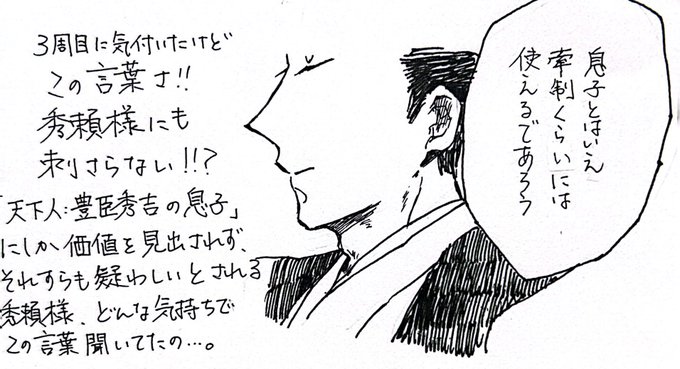 3周目に気付いたけど
この言葉さ!!
秀頼様にも
刺さらない!!?
「天下人:豊臣秀吉の息子」
にしか価値を見出されず、
それすらも疑わしいとされる
秀頼様、どんな気持ちで
この言葉聞いてたの…。
息子とはいえ
牽制くらいには
使えるであろう